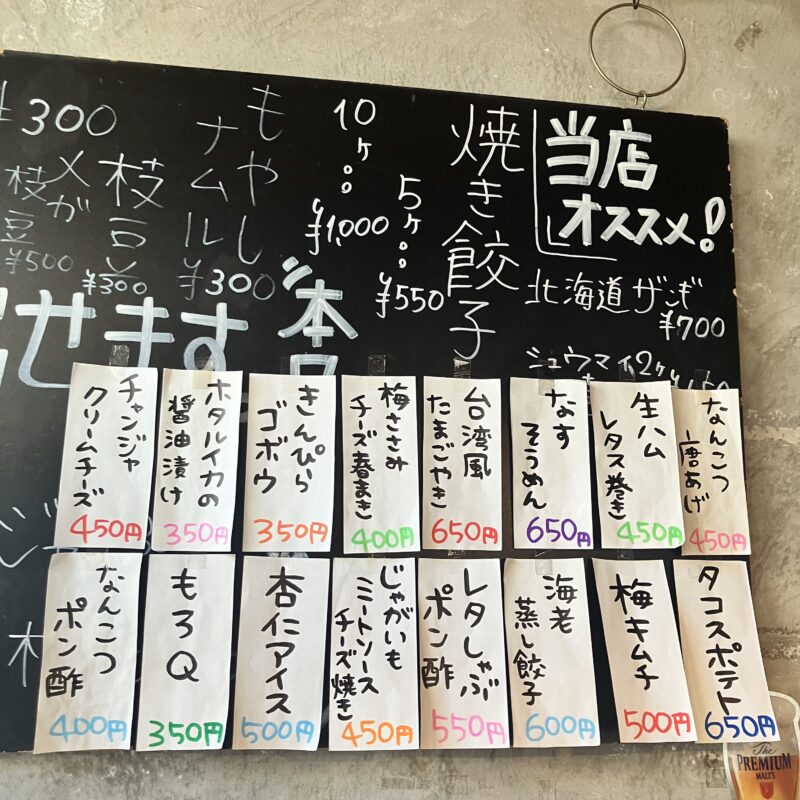 当店
オススメ!
北海道ザンギ
¥700
焼き餃子
5ヶ
¥550
10ヶ
¥1,000
もやし
ナムル
¥300
枝豆
¥300
メガ
枝豆
¥500
¥300
せます
なんこつ
唐あげ
450円
生ハム
レタス巻き
450円
なす
そうめん
650円
台湾風
たまごやき
650円
梅ささみ
チーズ春まき
400円
きんぴら
ゴボウ
350円
ホタルイカの
醤油漬け
350円
チャンジャ
クリームチーズ
450円
タコスポテト
650円
梅キムチ
500円
海老
蒸し餃子
600円
レタしゃぶ
ポン酢
550円
じゃがいも
ミートソース
チーズ焼き
450円
杏仁アイス
500円
もろQ
350円
なんこつ
ポン酢
400円
The
PREMIUM
MALT'S